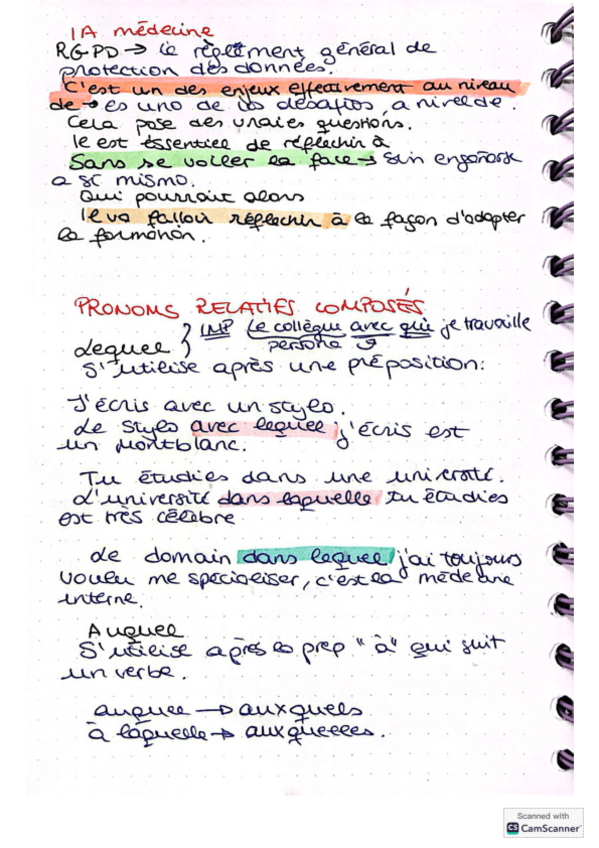 IA médecine
RGPD → le règlement général de
protection des données.
C'est un des enjeux effectivement au niveau
de → es uno de los desafíos a nivel de.
Cela pose des vraies questions.
Il est essentiel de réfléchir à
Sans se voiler la face → sin engañarse
a sí mismo.
Qui pourrait alors
Il va falloir réfléchir à la façon d'adapter
la formation.
PRONOMS RELATIFS COMPOSÉS
IMP Le collègue avec qui je travaille
persona
Lequel }
S'utilise après une préposition:
J'écris avec un stylo.
Le stylo avec lequel j'écris est
un Montblanc.
Tu étudies dans une université.
L'université dans laquelle tu étudies
est très célèbre
Le domain dans lequel j'ai toujours
voulu me spécialiser, c'est la médecine
interne.
Auquel
S'utilise après la prep "à" qui suit
un verbe.
auquel → auxquels
à laquelle → auxquelles.
Scanned with
CS CamScanner